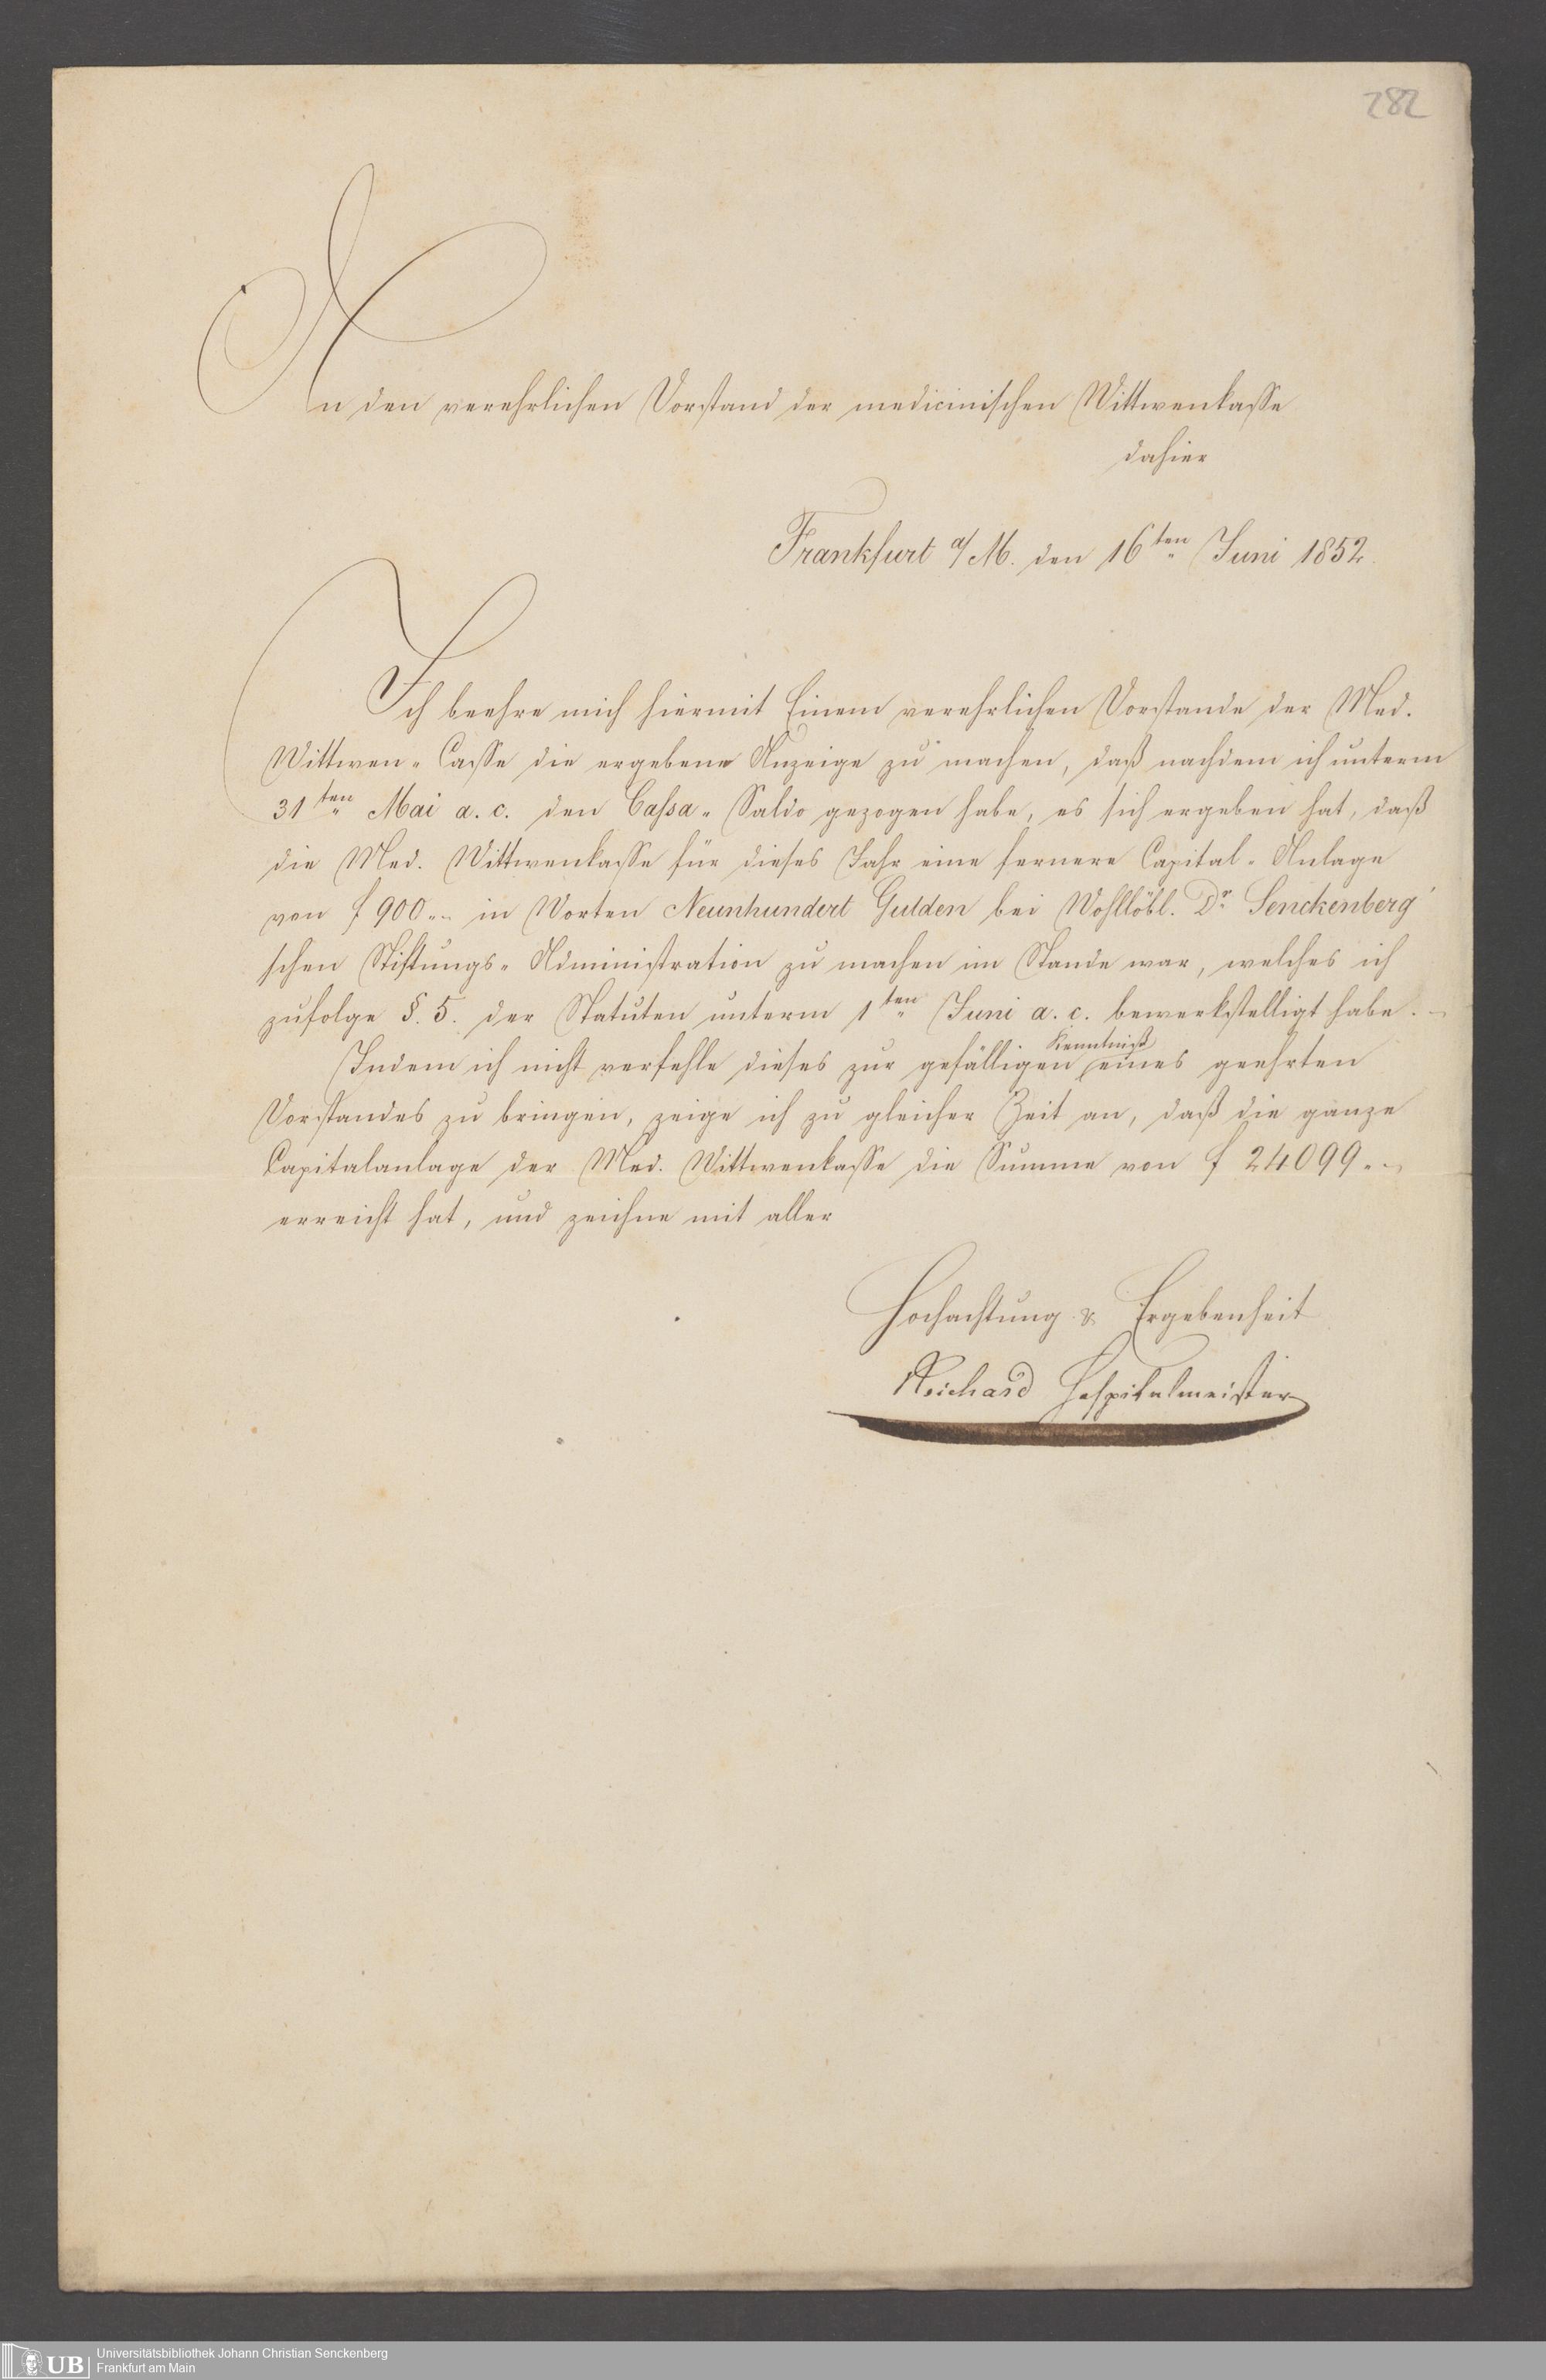 282
An den verehrlichen Vorstand der medicinischen Wittwenkasse
dahier
Frankfurt a/M. den 16ten Juni 1852.
Ich beehre mich hiermit Einem verehrlichen Vorstande der Med.
Wittwen-Casse die ergebene Anzeige zu machen, daß nachdem ich unterm
31ten Mai a. c. den Cassa-Saldo gezogen habe, es sich ergeben hat, daß
die Med. Wittwenkasse für dieses Jahr eine fernere Capital-Anlage
von f 900.- in Worten Neunhundert Gulden bei Wohllöbl. Dr. Senckenberg'
schen Stiftungs-Administration zu machen im Stande war, welches ich
zufolge §. 5. der Statuten unterm 1ten Juni a. c. bewerkstelligt habe. -
Kenntniß
Indem ich nicht verfehle dieses zur gefälligen eines geehrten
Vorstandes zu bringen, zeige ich zu gleicher Zeit an, daß die ganze
Capitalanlage der Med. Wittwenkasse die Summe von f 24099.-
erreicht hat, und zeichne mit aller
Hochachtung & Ergebenheit
Reichard Hospitalmeister
UB
Universitätsbibliothek Johann Christian Senckenberg
Frankfurt am Main